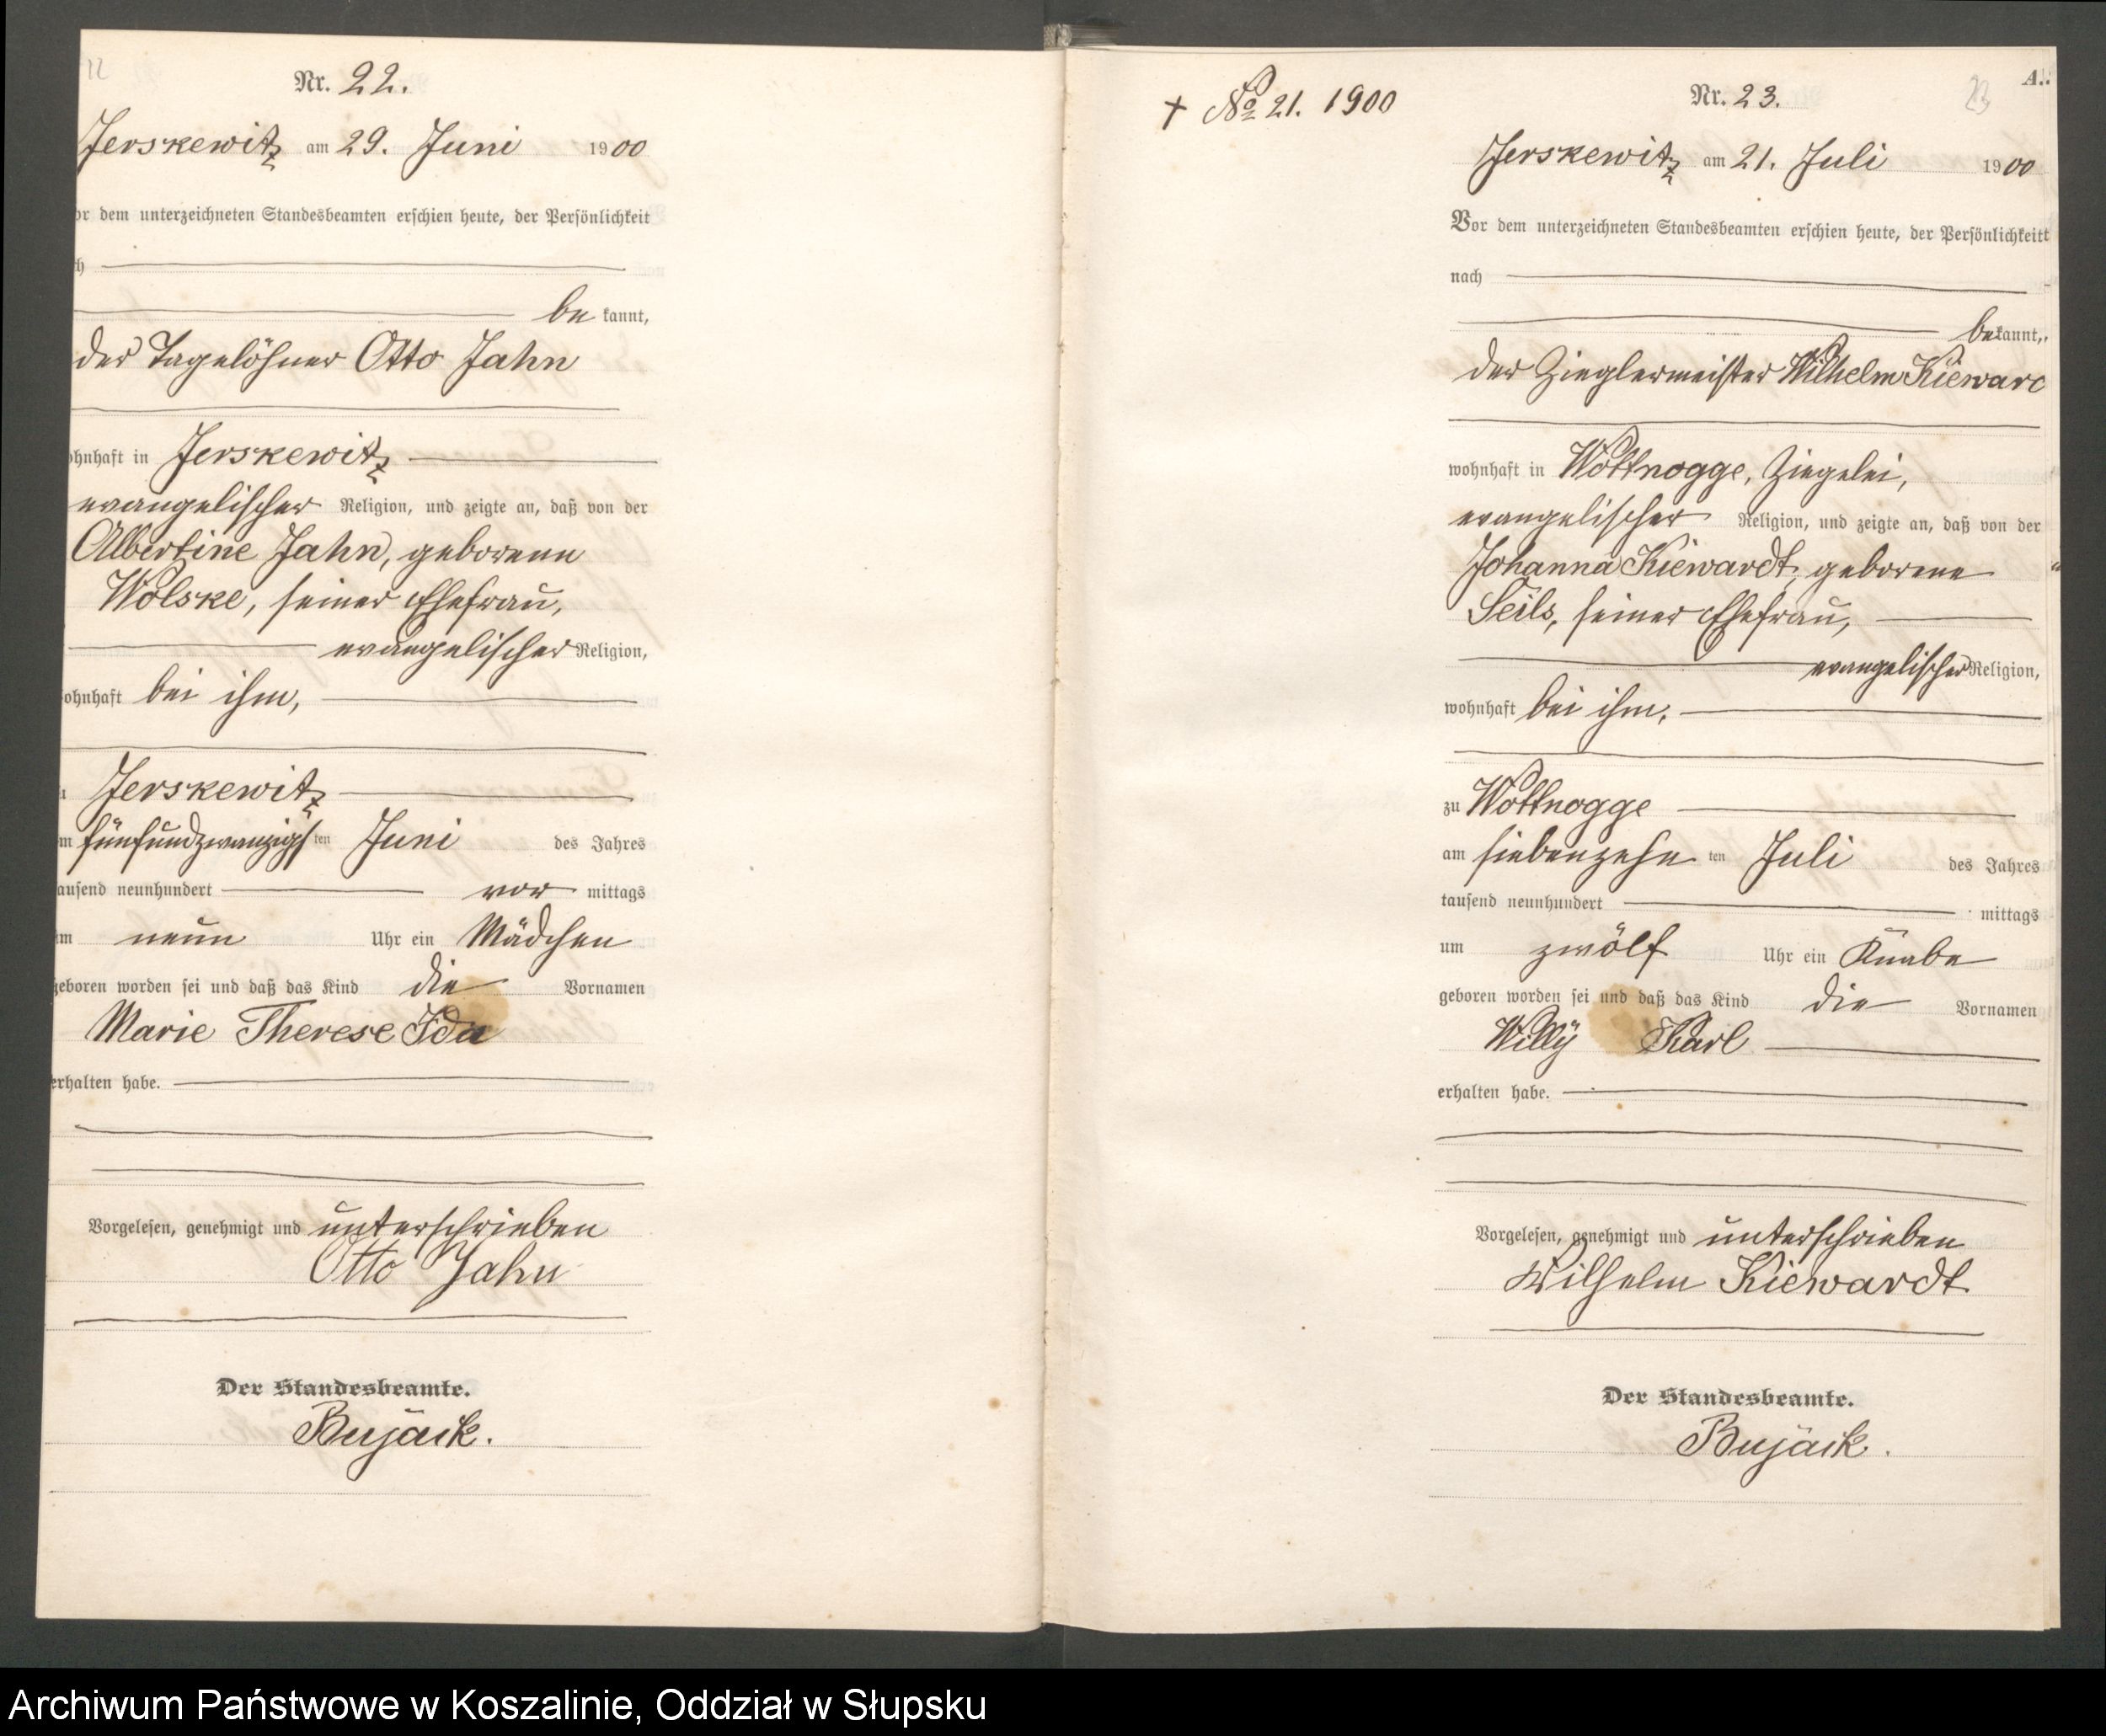 Nr. 22.
Jerskewitz am 29. Juni 1900
or dem unterzeichneten Standesbeamten erschien heute, der Persönlichkeit
h
be kannt,
der Tagelöhner Otto Jahn
ohnhaft in Jerskewitz
evangelischer Religion, und zeigte an, daß von der
Albertine Jahn, geborenen
Wolske, seiner Ehefrau,
evangelischer Religion,
ohnhaft bei ihm,
Jerskewitz
m fünfundzwanzigsten Juni des Jahres
ausend neunhundert vor mittags
m neun Uhr ein Mädchen
geboren worden sei und daß das Kind die Vornamen
Marie Therese Ida
erhalten habe.
Vorgelesen, genehmigt und unterschrieben
Otto Jahn
Der Standesbeamte.
Bujack.
+ No 21. 1900
A.
Nr. 23.
23
Jerskewitz am 21. Juli 1900
Vor dem unterzeichneten Standesbeamten erschien heute, der Persönlichkeit
nach
bekannt,
der Zieglermeister Wilhelm Kiewardt
wohnhaft in Wottnogge, Ziegelei,
evangelischer Religion, und zeigte an, daß von der
Johanna Kiewardt, geborene
Seils, seiner Ehefrau,
evangelischer Religion,
wohnhaft bei ihm,
zu Wottnogge
am siebenzehnten Juli des Jahres
tausend neunhundert mittags
um zwölf Uhr ein Knabe
geboren worden sei und daß das Kind die Vornamen
Willy Karl
erhalten habe.
Vorgelesen, genehmigt und unterschrieben
Wilhelm Kiewardt
Der Standesbeamte.
Bujack.
Archiwum Państwowe w Koszalinie, Oddział w Słupsku